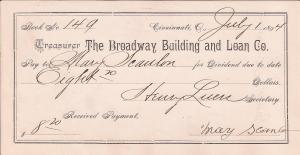 Book No. 149 Cincinnati, O., July 1 1894
Treasurer The Broadway Building and Loan Co.
Pay to Mary Scanlon for Dividend due to date
Eight 20 Dollars.
Henry Luers Secretary
Received Payment,
$ 8 20 Mary Scanl